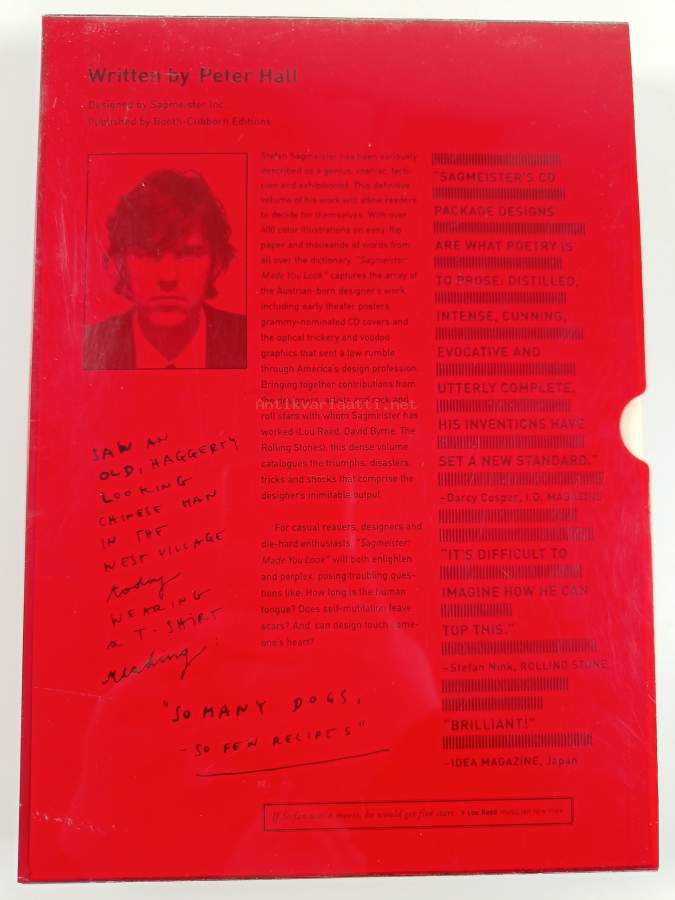 Written by Peter Hall
Designed by Sagmeister Inc.
Published by Booth-Clibborn Editions
Stefan Sagmeister has been variously
described as a genius, maniac, tacti-
cian and exhibitionist. This definitive
volume of his work will allow readers
to decide for themselves. With over
400 color illustrations on easy-flip
paper and thousands of words from
all over the dictionary, "Sagmeister:
Made You Look" captures the array of
the Austrian-born designer's work,
including early theater posters,
grammy-nominated CD covers and
the optical trickery and voodoo
graphics that sent a low rumble
through America's design profession.
Bringing together contributions from
the designers, artists and rock and
roll stars with whom Sagmeister has
worked (Lou Reed, David Byrne, The
Rolling Stones), this dense volume
catalogues the triumphs, disasters,
tricks and shocks that comprise the
designer's inimitable output.
For casual readers, designers and
die-hard enthusiasts, "Sagmeister:
Made You Look" will both enlighten
and perplex, posing troubling ques-
tions like: How long is the human
tongue? Does self-mutilation leave
scars? And, can design touch some-
one's heart?
"SAGMEISTER'S CD
PACKAGE DESIGNS
ARE WHAT POETRY IS
TO PROSE: DISTILLED,
INTENSE, CUNNING,
EVOCATIVE AND
UTTERLY COMPLETE.
HIS INVENTIONS HAVE
SET A NEW STANDARD."
–Darcy Cosper, I.D. MAGAZINE
"IT'S DIFFICULT TO
IMAGINE HOW HE CAN
TOP THIS."
–Stefan Nink, ROLLING STONE
"BRILLIANT!"
–IDEA MAGAZINE, Japan
SAW AN
OLD, HAGGERTY
LOOKING
CHINESE MAN
IN THE
WEST VILLAGE
today
WEARING
a T-SHIRT
reading:
"SO MANY DOGS,
– SO FEW RECIPES"
If Stefan was a movie, he would get five stars. • Lou Reed musician new york
Antikvariaatti.net